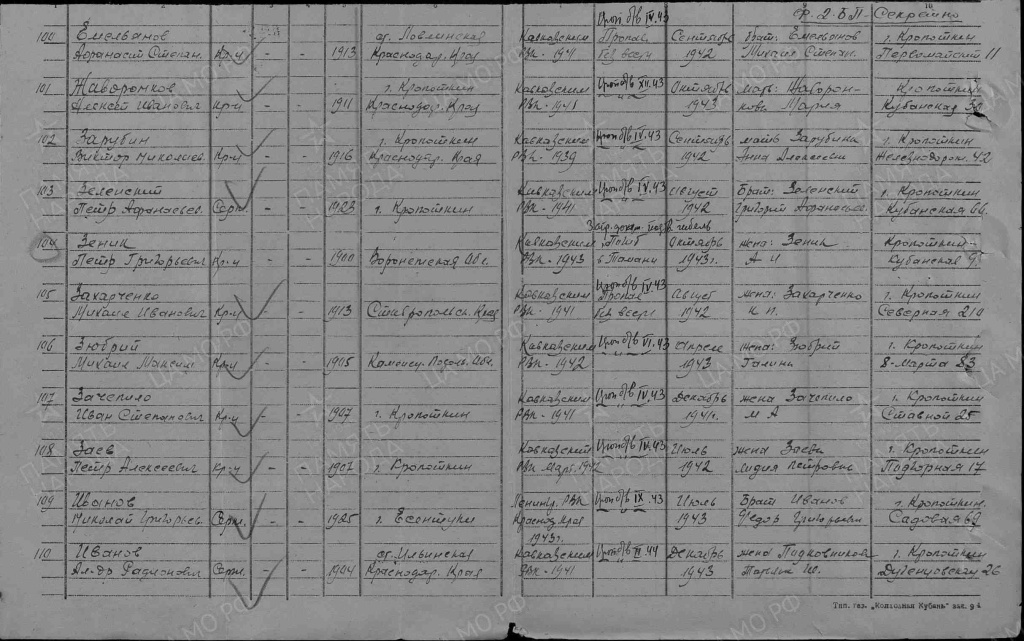 Ф-2-БП- Секретно
100 Емельянов ст. Ловлинская Кавказским Проп б/в IV.43 Пропав Сентябрь брат: Емельянов г. Кропоткин
Афанасий Степан. Кр-ц - - 1913 Краснодар. Края РВК - 1941 без вести 1942 Михаил Степан. Первомайский 11
101 Жаворонков г. Кропоткин Кавказским Проп б/в XII.43 Октябрь мать: Жаворон- Кропоткин
Алексей Иванович Кр-ц - - 1911 Краснодар. Края РВК - 1941 1943 кова Мария Кубанская
102 Зарубин г. Кропоткин Кавказским Проп б/в IV.43 Сентябрь мать Зарубина г. Кропоткин
Виктор Николаев. Кр-ц - - 1916 Краснодар. Края РВК - 1939 1942 Анна Алексеевн Железнодорож. 42
103 Зеленский Кавказским Проп б/в IV.43 Август Брат: Зеленский г. Кропоткин
Петр Афанасьев. Серж. - - 1923 г. Кропоткин РВК - 1941 1942 Григорий Афанасьев. Кубанская 66
104 Зеник Кавказским Погиб Октябрь жена: Зеник Кропоткин
Петр Григорьевич Кр-ц - - 1900 Воронежская Обл. РВК - 1943 в Тамани 1943г. А И Кубанская
105 Захарченко Кавказским Проп б/в IV.43 Пропав Август жена: Захарченко г. Кропоткин
Михаил Иванович Кр-ц - - 1913 Ставропольск. Края РВК - 1941 без вести 1942 К П. Северная 210
106 Зюбрий Кавказским Проп б/в VI.43 Апрель жена: Зюбрий г. Кропоткин
Михаил Максим. Кр-ц - - 1905 Каменец-Подол. Обл. РВК - 1942 1943 Галина 8-Марта 83
107 Зачепило Кавказским Проп б/в IV.43 Декабрь жена Зачепило г. Кропоткин
Иван Степанович Кр-ц - - 1907 г. Кропоткин РВК - 1941 1941г. М А Ставной 25
108 Заев Кавказский Проп б/в IV.43 Июль жена Заева г. Кропоткин
Петр Алексеевич Кр-ц - - 1907 г. Кропоткин РВК Март. 1942 1942 Лидия Петровна Подгорная 17
109 Иванов Ленинг. РВК Проп б/в IX.43 Июль Брат Иванов г. Кропоткин.
Николай Григорьев. Серж. - - 1925 г. Есентуки Краснод. Края 1943 Федор Григорьевич Садовая
1943г.
110 Иванов ст. Ильинская Кавказским Проп б/в II.44 Декабрь жена Подковникова г. Кропоткин
Ал-др Радионович Серж. - - 1904 Краснодар. Края РВК - 1941 1943 26
Тип. газ. „Колхозная Кубань" зак. 94
ПАМЯТЬ НАРОДА
ЦАМО РФ